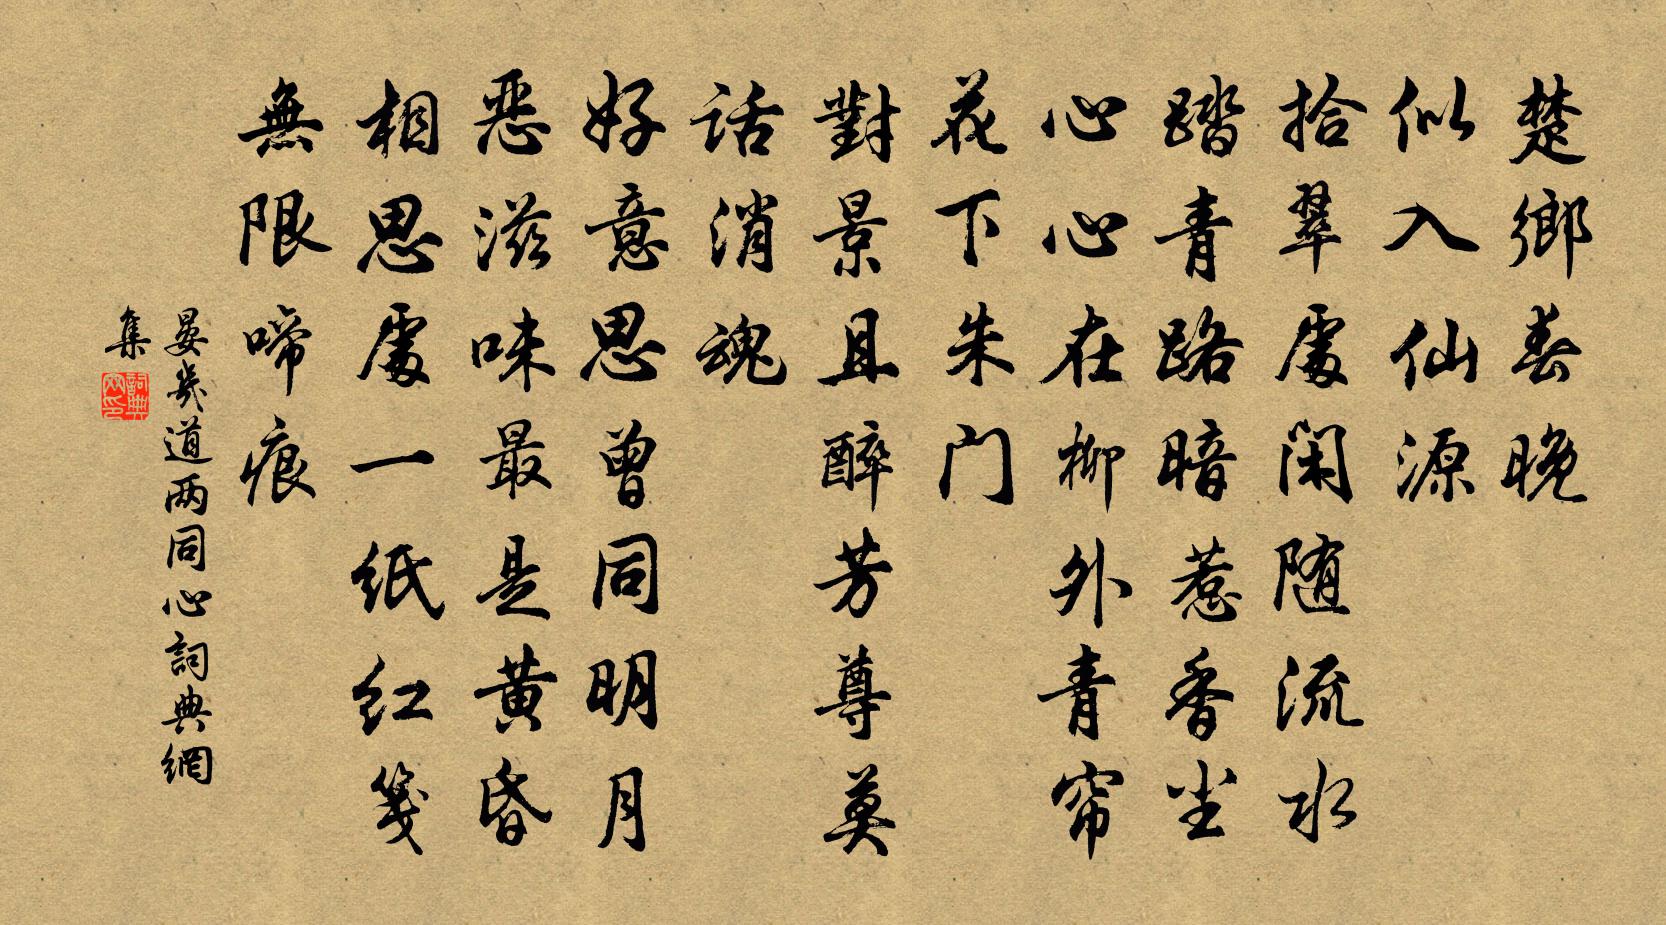 楚鄉春晚
似入仙源
拾翠處閑随流水
踏青路暗惹香尘
心心在柳外青帘
花下朱门
對景且醉芳尊莫
话消魂
好意思曾同明月
恶滋味最是黄昏
相思處一纸红笺
無限啼痕
晏几道两同心詞典網
集
詞典網印